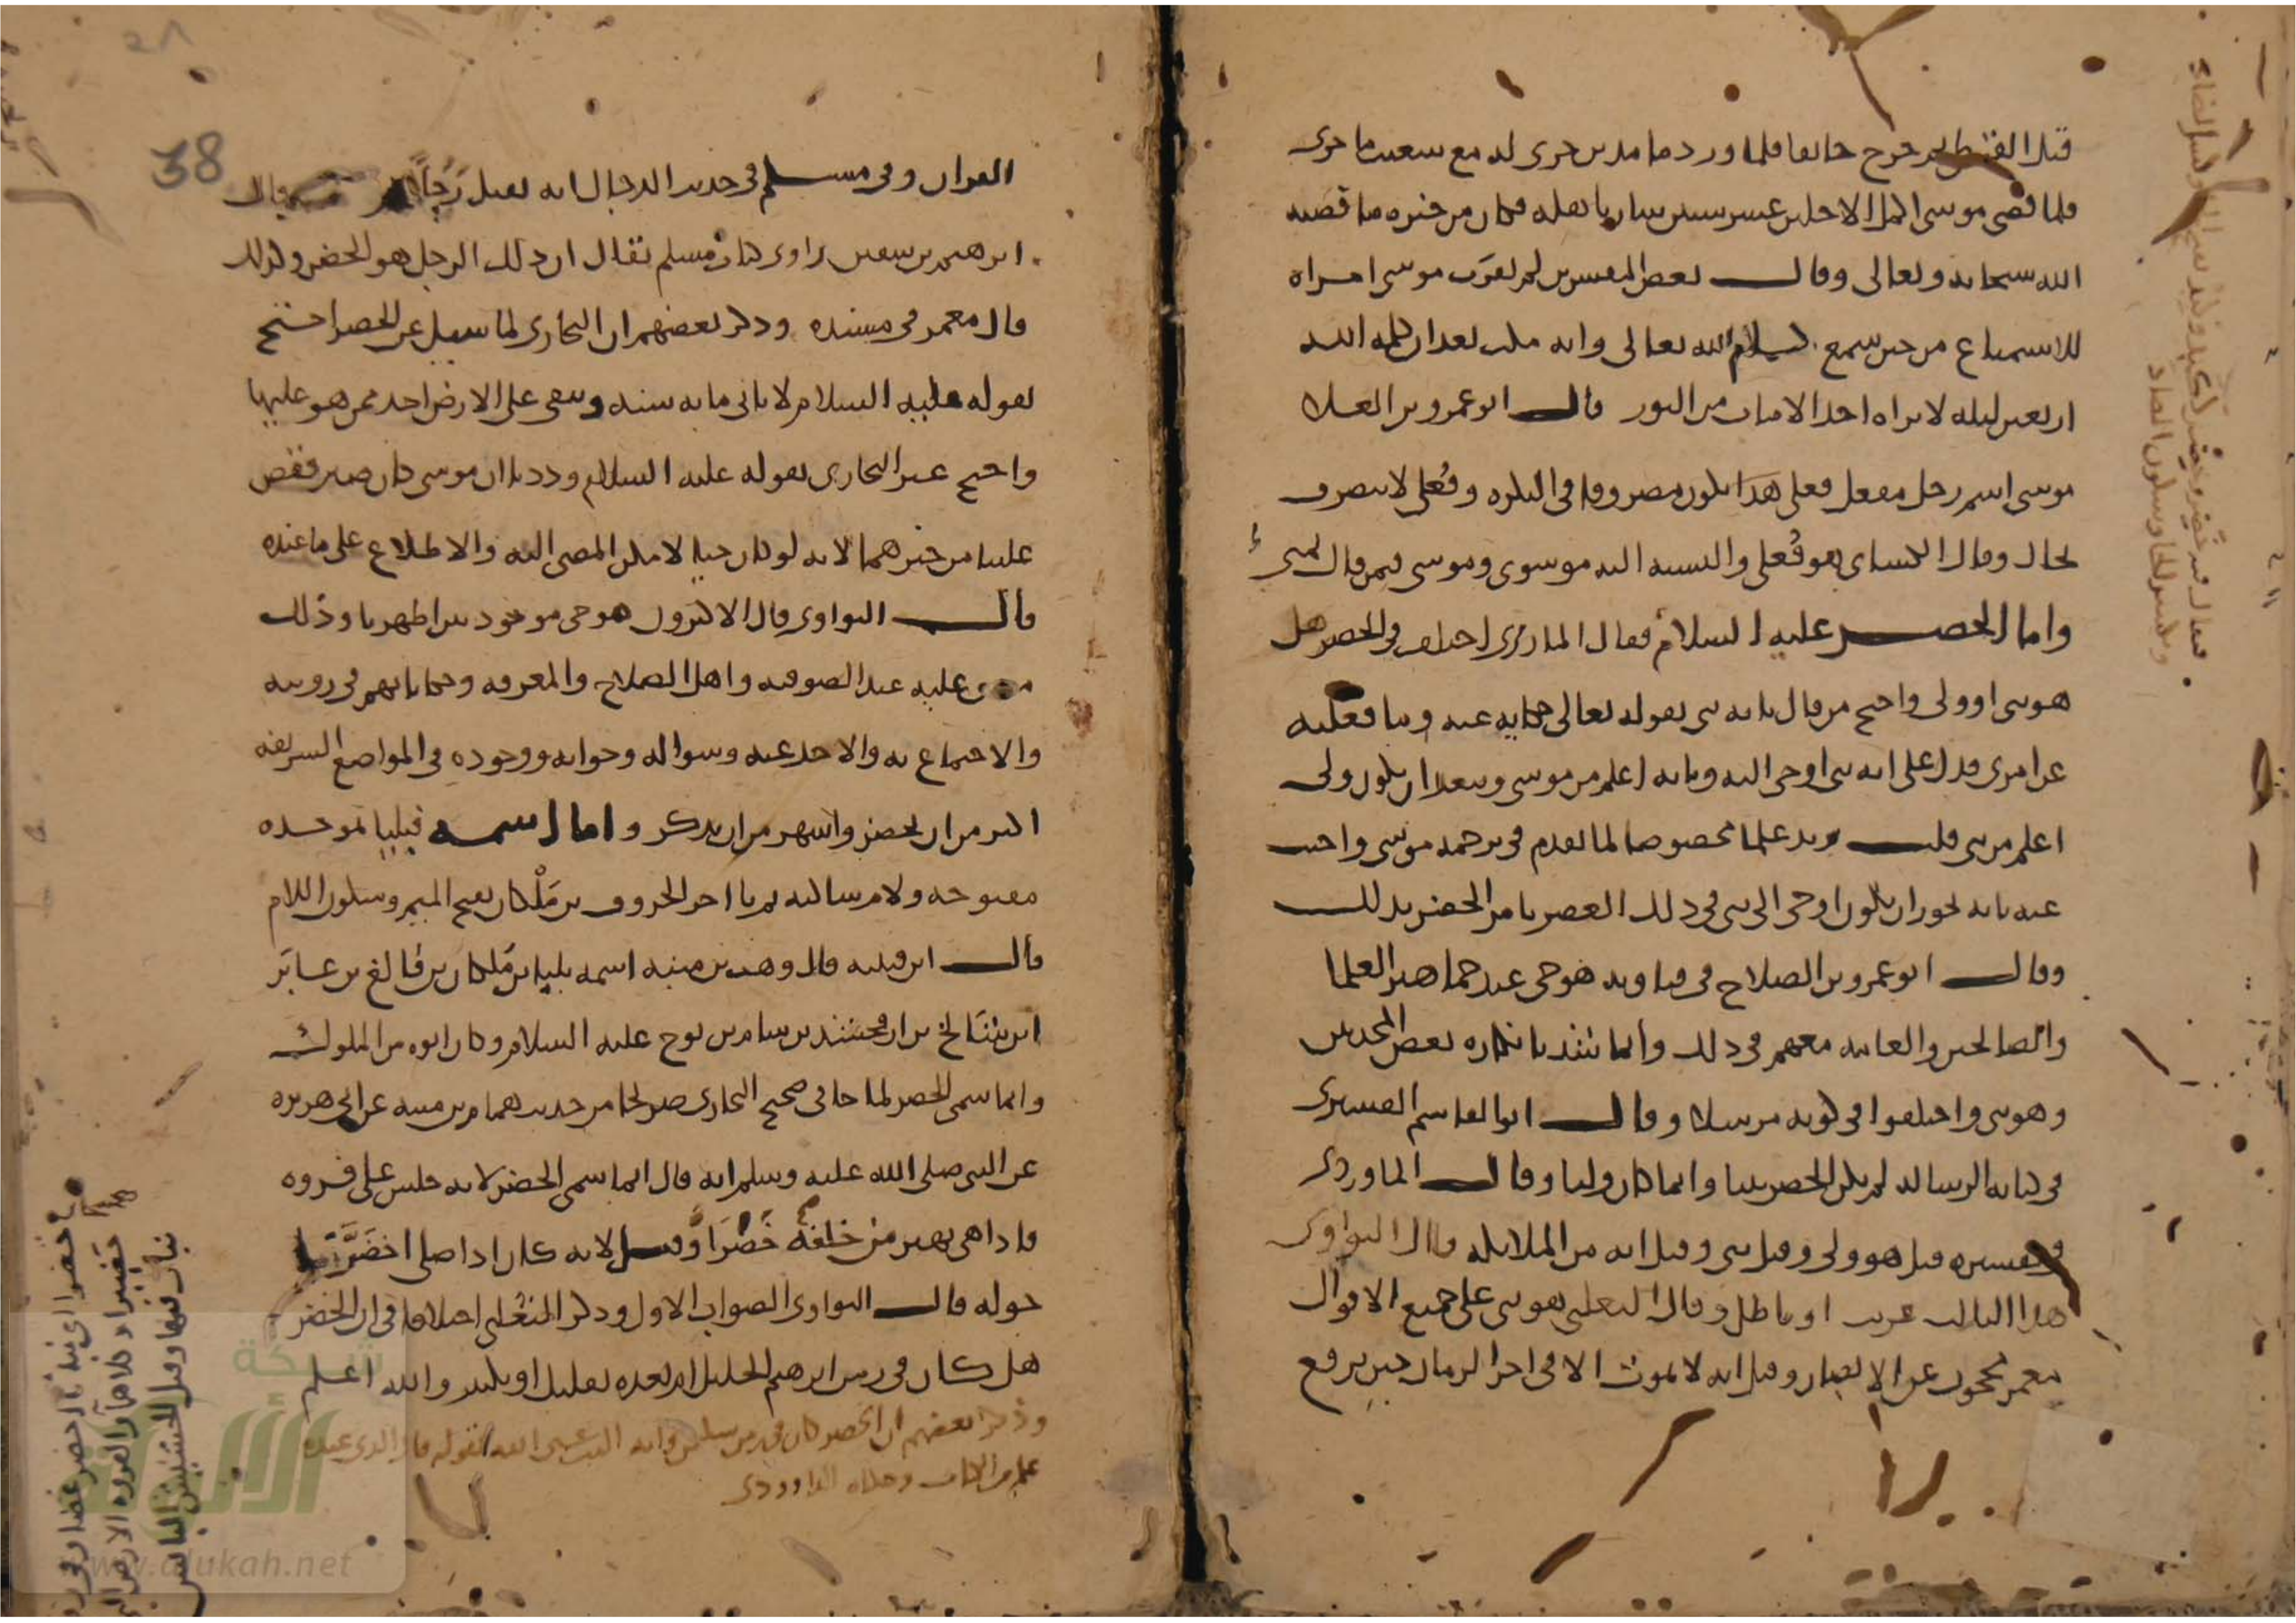 قتل القبطي ثم خرج خائفا فلما ورد ماء مدين جرى له مع شعيب ما جرى
فلما قضى موسى اكمل الاجلين عشر سنين سار باهله فكان من خبره ما قصه
الله سبحانه وتعالى وقال بعض المفسرين لم يقرب موسى امراة
للاستمتاع من حين سمع كلام الله تعالى وانه مكث بعد ان كلمه الله
اربعين ليلة لا يراه احد الا مات من النور قال ابو عمرو بن العلا
موسى اسم رجل مفعل فعلى هذا يكون مصروفا في النكرة وفعلى لا ينصرف
بحال وقال الكسائي هو فعلى والنسبة اليه موسوى وموسى فيمن قال
واما الخضر عليه السلام فقال المازري اختلف في الخضر هل
هو نبي او ولي واحتج من قال بانه نبي بقوله تعالى حكاية عنه وما فعلته
عن امري فدل على انه نبي اوحي اليه وبانه اعلم من موسى ويبعد ان يكون ولي
اعلم من نبي قلت علما مخصوصا لما تقدم في ترجمة موسى واجيب
عنه بانه يجوز ان يكون اوحى الى نبي في ذلك العصر يامر الخضر بذلك
وقال ابو عمرو بن الصلاح في فتاويه هو حي عند جماهير العلما
والصالحين والعامة معهم في ذلك وانما شذ بانكاره بعض المحدثين
وهو نبي واختلفوا في كونه مرسلا وقال ابو القاسم القشيري
في كتابه الرسالة لم يكن الخضر نبيا وانما كان وليا وقال الماوردي
في تفسيره قيل هو ولي وقيل نبي وقيل انه من الملائكة قال النواوي
هذا الثالث غريب او باطل وقال الثعلبي هو نبي على جميع الاقوال
معمر محجوب عن الابصار وقيل انه لا يموت الا في اخر الزمان حين يرفع
38
القران وفي مسلم في حديث الدجال انه يقتل رجلا قال
ابرهيم بن سفين راوي كتاب مسلم يقال ان ذلك الرجل هو الخضر وكذلك
قال معمر في مسنده وذكر بعضهم ان البخاري لما سيل عن الخضر احتج
بقوله عليه السلام لا ياتي مائة سنة ويبقى على الارض احد ممن هو عليها
واحتج غير البخاري بقوله عليه السلام وددنا ان موسى كان صبر فقص
علينا من خبرهما لانه لو كان حيا لامكن المضي اليه والاطلاع على ما عنده
قال النواوي قال الاكثرون هو حي موجود بين اظهرنا وذلك
متفق عليه عند الصوفية واهل الصلاح والمعرفة وحكاياتهم في رويته
والاجتماع به والاخذ عنه وسواله وجوابه ووجوده في المواضع الشريفة
اكثر من ان تحصر واشهر من ان تذكر واما اسمه فبليا بموحدة
مفتوحة ولام ساكنة ثم يا اخر الحروف بن ملكان بفتح الميم وسكون اللام
قال ابن قتيبة قال وهب بن منبه اسمه بليا بن ملكان بن فالغ بن عابر
ابن شالخ بن ارفخشد بن سام بن نوح عليه السلام وكان ابوه من الملوك
وانما سمي الخضر لما جا في صحيح البخاري من حديث همام بن منبه عن ابي هريرة
عن النبي صلى الله عليه وسلم انه قال انما سمي الخضر لانه جلس على فروة
فاذا هي تهتز من خلفه خضرا وقيل لانه كان اذا صلى اخضر ما
حوله قال النواوي الصواب الاول وذكر الثعلبي اختلافا في ان الخضر
هل كان في زمن ابرهيم الخليل ام بعده بقليل او بكثير والله اعلم
وذكر بعضهم ان الخضر كان في زمن سليمن وانه الذي عنى الله بقوله قال الذي عنده
علم من الكتاب وحكاه الداوودي